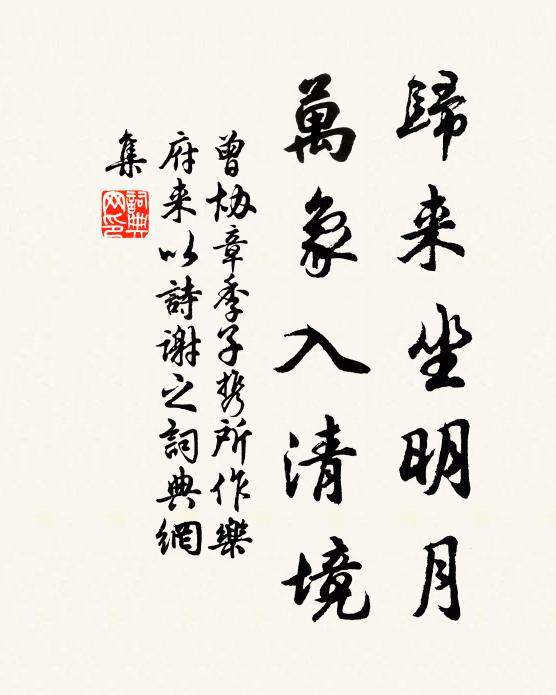 歸来坐明月
萬象入清境
曾协章季子携所作樂
府来以詩謝之詞典網
集
詞典
网印